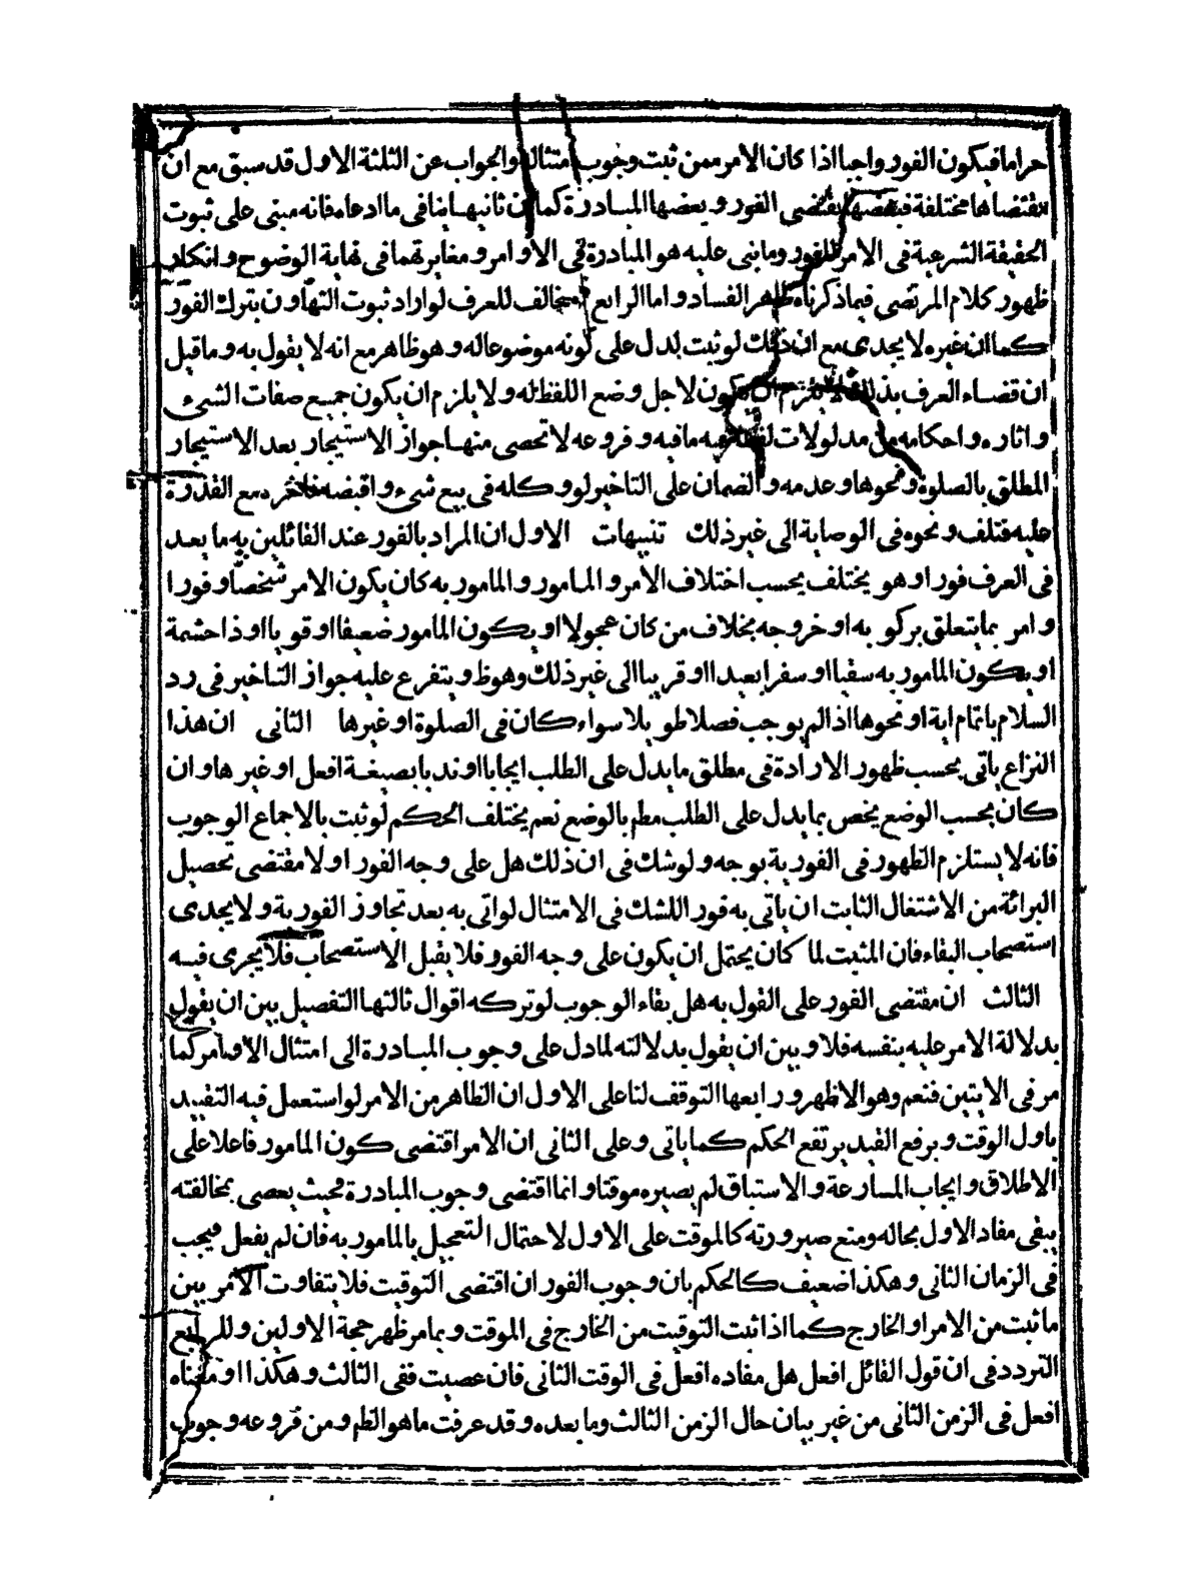 حراما فيكون الفور واجبا اذا كان الامر ممن ثبت وجوب امتثاله والجواب عن الثلثة الاول قد سبق مع ان
مقتضاها مختلفة فبعضها يقتضى الفور وبعضها المبادرة كما ان ثانيها ينافى ما ادعاه فانه مبنى على ثبوت
الحقيقة الشرعية فى الامر للفور وما بنى عليه هو المبادرة فى الاوامر ومغايرتهما فى نهاية الوضوح وانكار
ظهور كلام المرتضى فيما ذكرناه ظاهر الفساد واما الرابع فمخالف للعرف لو اراد ثبوت التهاون بترك الفور
كما ان غيره لا يجدى مع ان ذلك لو ثبت لدل على كونه موضوعا له وهو ظاهر مع انه لا يقول به وما قيل
ان قضاء العرف بذلك لا يلزم ان يكون لاجل وضع اللفظ له ولا يلزم ان يكون جميع صفات الشىء
واثاره واحكامه من مدلولات لفظه ففيه ما فيه وفروعه لا تحصى منها جواز الاستيجار بعد الاستيجار
المطلق بالصلوة ونحوها وعدمه والضمان على التاخير لو وكله فى بيع شىء واقبضه فاخره مع القدرة
عليه فتلف ونحوه فى الوصاية الى غير ذلك تنبيهات الاول ان المراد بالفور عند القائلين به ما يعد
فى العرف فورا وهو يختلف بحسب اختلاف الامر والمامور والمامور به كان يكون الامر شخصا وقورا
وامر بما يتعلق بركوبه او خروجه بخلاف من كان عجولا او يكون المامور ضعيفا او قويا او ذا حشمة
او يكون المامور به سقيا او سفرا بعيدا او قريبا الى غير ذلك وهو ظ ويتفرع عليه جواز التاخير فى رد
السلام باتمام اية او نحوها اذا لم يوجب فصلا طويلا سواء كان فى الصلوة او غيرها الثانى ان هذا
النزاع ياتى بحسب ظهور الارادة فى مطلق ما يدل على الطلب ايجابا او ندبا بصيغة افعل او غيرها وان
كان بحسب الوضع يخص بما يدل على الطلب مطم بالوضع نعم يختلف الحكم لو ثبت بالاجماع الوجوب
فانه لا يستلزم الظهور فى الفورية بوجه ولو شك فى ان ذلك هل على وجه الفور او لا مقتضى تحصيل
البرائة من الاشتغال الثابت ان ياتى به فورا للشك فى الامتثال لو اتى به بعد تجاوز الفورية ولا يجدى
استصحاب البقاء فان المثبت لما كان يحتمل ان يكون على وجه الفور فلا يقبل الاستصحاب فلا يجرى فيه
الثالث ان مقتضى الفور على القول به هل بقاء الوجوب لو تركه اقوال ثالثها التفصيل بين ان يقول
بدلالة الامر عليه بنفسه فلا وبين ان يقول بدلالته لما دل على وجوب المبادرة الى امتثال الاوامر كما
مر فى الايتين فنعم وهو الاظهر ورابعها التوقف لنا على الاول ان الظاهر من الامر لو استعمل فيه التقييد
باول الوقت وبرفع القيد يرتفع الحكم كما ياتى وعلى الثانى ان الامر اقتضى كون المامور فاعلا على
الاطلاق وايجاب المسارعة والاستباق لم يصيره موقتا وانما اقتضى وجوب المبادرة فحيث يعصى بمخالفته
يبقى مفاد الاول بحاله ومنع صيرورته كالموقت على الاول لاحتمال التعجيل بالمامور به فان لم يفعل فيجب
فى الزمان الثانى وهكذا ضعيف كالحكم بان وجوب الفور ان اقتضى التوقيت فلا يتفاوت الامر بين
ما ثبت من الامر او الخارج كما اذا ثبت التوقيت من الخارج فى الموقت وبما مر ظهر حجة الاولين وللرابع
التردد فى ان قول القائل افعل هل مفاده افعل فى الوقت الثانى فان عصيت ففى الثالث وهكذا او معناه
افعل فى الزمن الثانى من غير بيان حال الزمن الثالث وما بعده وقد عرفت ما هو الظم ومن فروعه وجوب